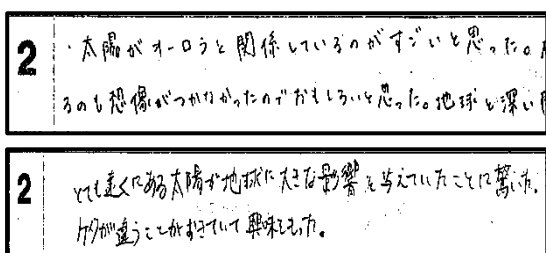 2
・太陽がオーロラと関係しているのがすごいと思った。
るのも想像がつかなかったのでおもしろいと思った。地球と深い
2
とても遠くにある太陽が地球に大きな影響を与えていたことに驚いた。
ケタが違うことがおきていて興味をもった。